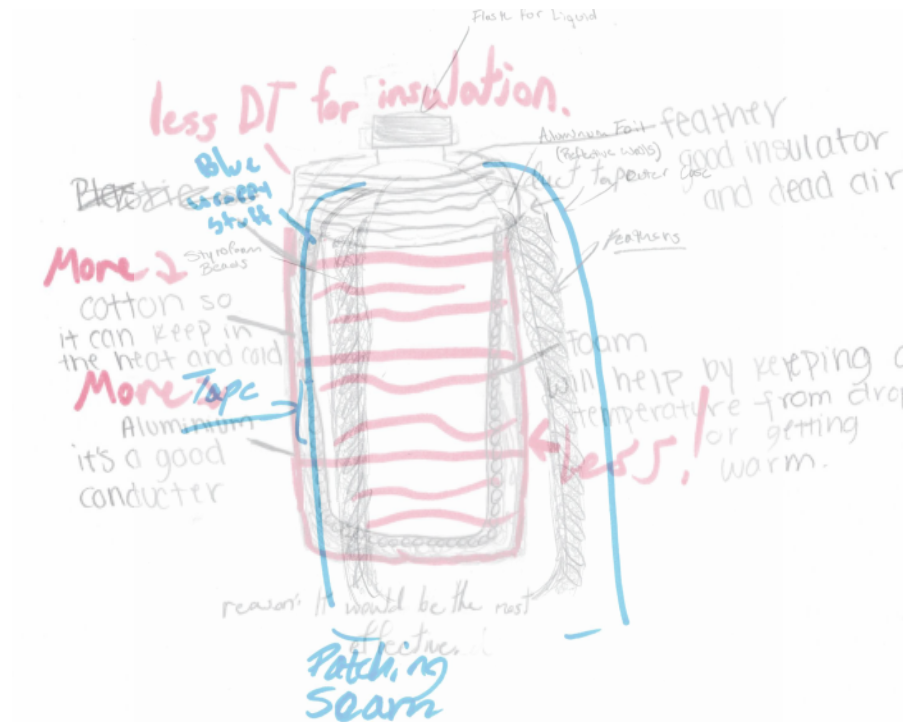 Flask for Liquid
less DT for insulation.
Aluminum Foil
(Reflective walls)
feather
good insulator
and dead air
Duct tape outer case
Blue
stuff
Feathers
Styrofoam
Beads
More
cotton so
it can keep in
the heat and cold
More Tape
Aluminium
it's a good
conducter
Foam
will help by keeping
temperature from drop
or getting
warm.
Less!
reason: It would be the most
effective.
Patching
Seam